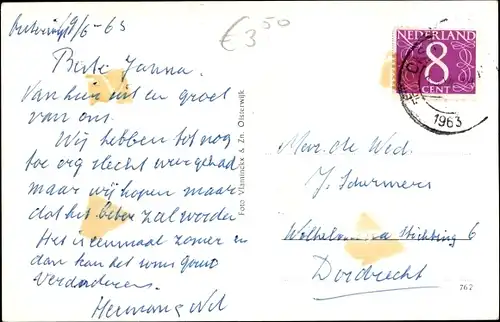 Oisterwijk 19/6-63
Beste Janna.
Van hier uit en groet
van ons.
Wij hebben tot nog
toe erg slecht weer gehad
maar wij hopen maar
dat het beter zal worden
Het is eenmaal zomer en
dan kan het soms gauw
veranderen.
Hermans
€ 3,50
Foto Vlaminckx & Zn. Oisterwijk
NEDERLAND
8
CENT
1963
Mevr. de Wed.
J. Schermers
Stichting 6
Dordrecht
762